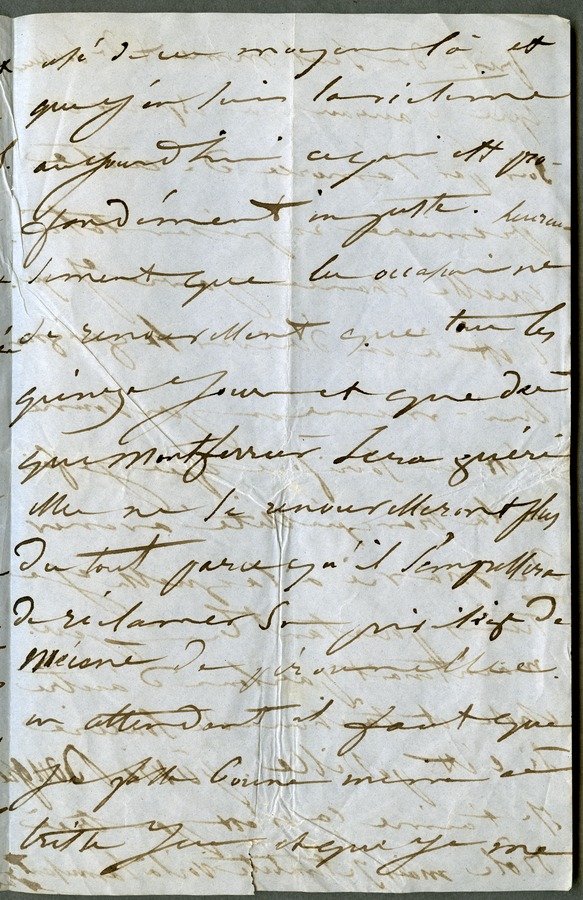 usé de ce moyen là et
que j'en suis la victime
aujourd'hui ce qui est pro-
fondément injuste. heureu
sement que les occasions ne
se renouvellent que tous les
quinze jours et que dès
que Montferrier sera guéri
elles ne se renouvelleront plus
du tout parce qu'il s'empressera
de réclamer son privilège de
mécène de
en attendant il faut que
je fasse bonne mine à
triste jeu et que je me